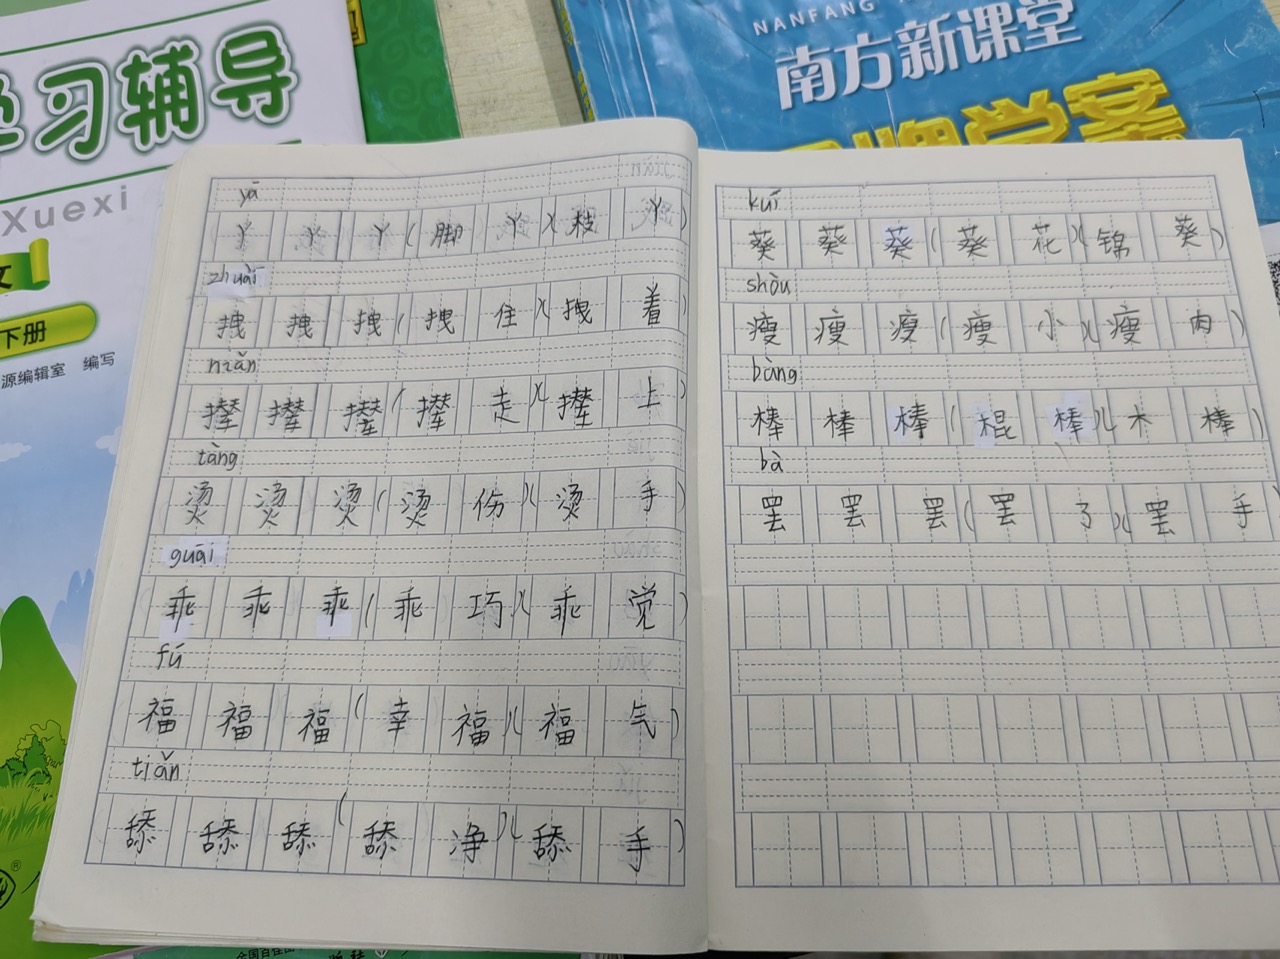 学习辅导
Xuexi
文
下册
源编辑室 编写
NANFANG
南方新课堂
学案
yā
丫 丫 丫(脚 丫)(枝 丫)
zhuài
拽 拽 拽(拽 住)(拽 着)
niǎn
撵 撵 撵(撵 走)(撵 上)
tàng
烫 烫 烫(烫 伤)(烫 手)
guāi
乖 乖 乖(乖 巧)(乖 觉)
fú
福 福 福(幸 福)(福 气)
tiǎn
舔 舔 舔(舔 净)(舔 手)
kuí
葵 葵 葵(葵 花)(锦 葵)
shòu
瘦 瘦 瘦(瘦 小)(瘦 肉)
bàng
棒 棒 棒(棍 棒)(木 棒)
bà
罢 罢 罢(罢 了)(罢 手)